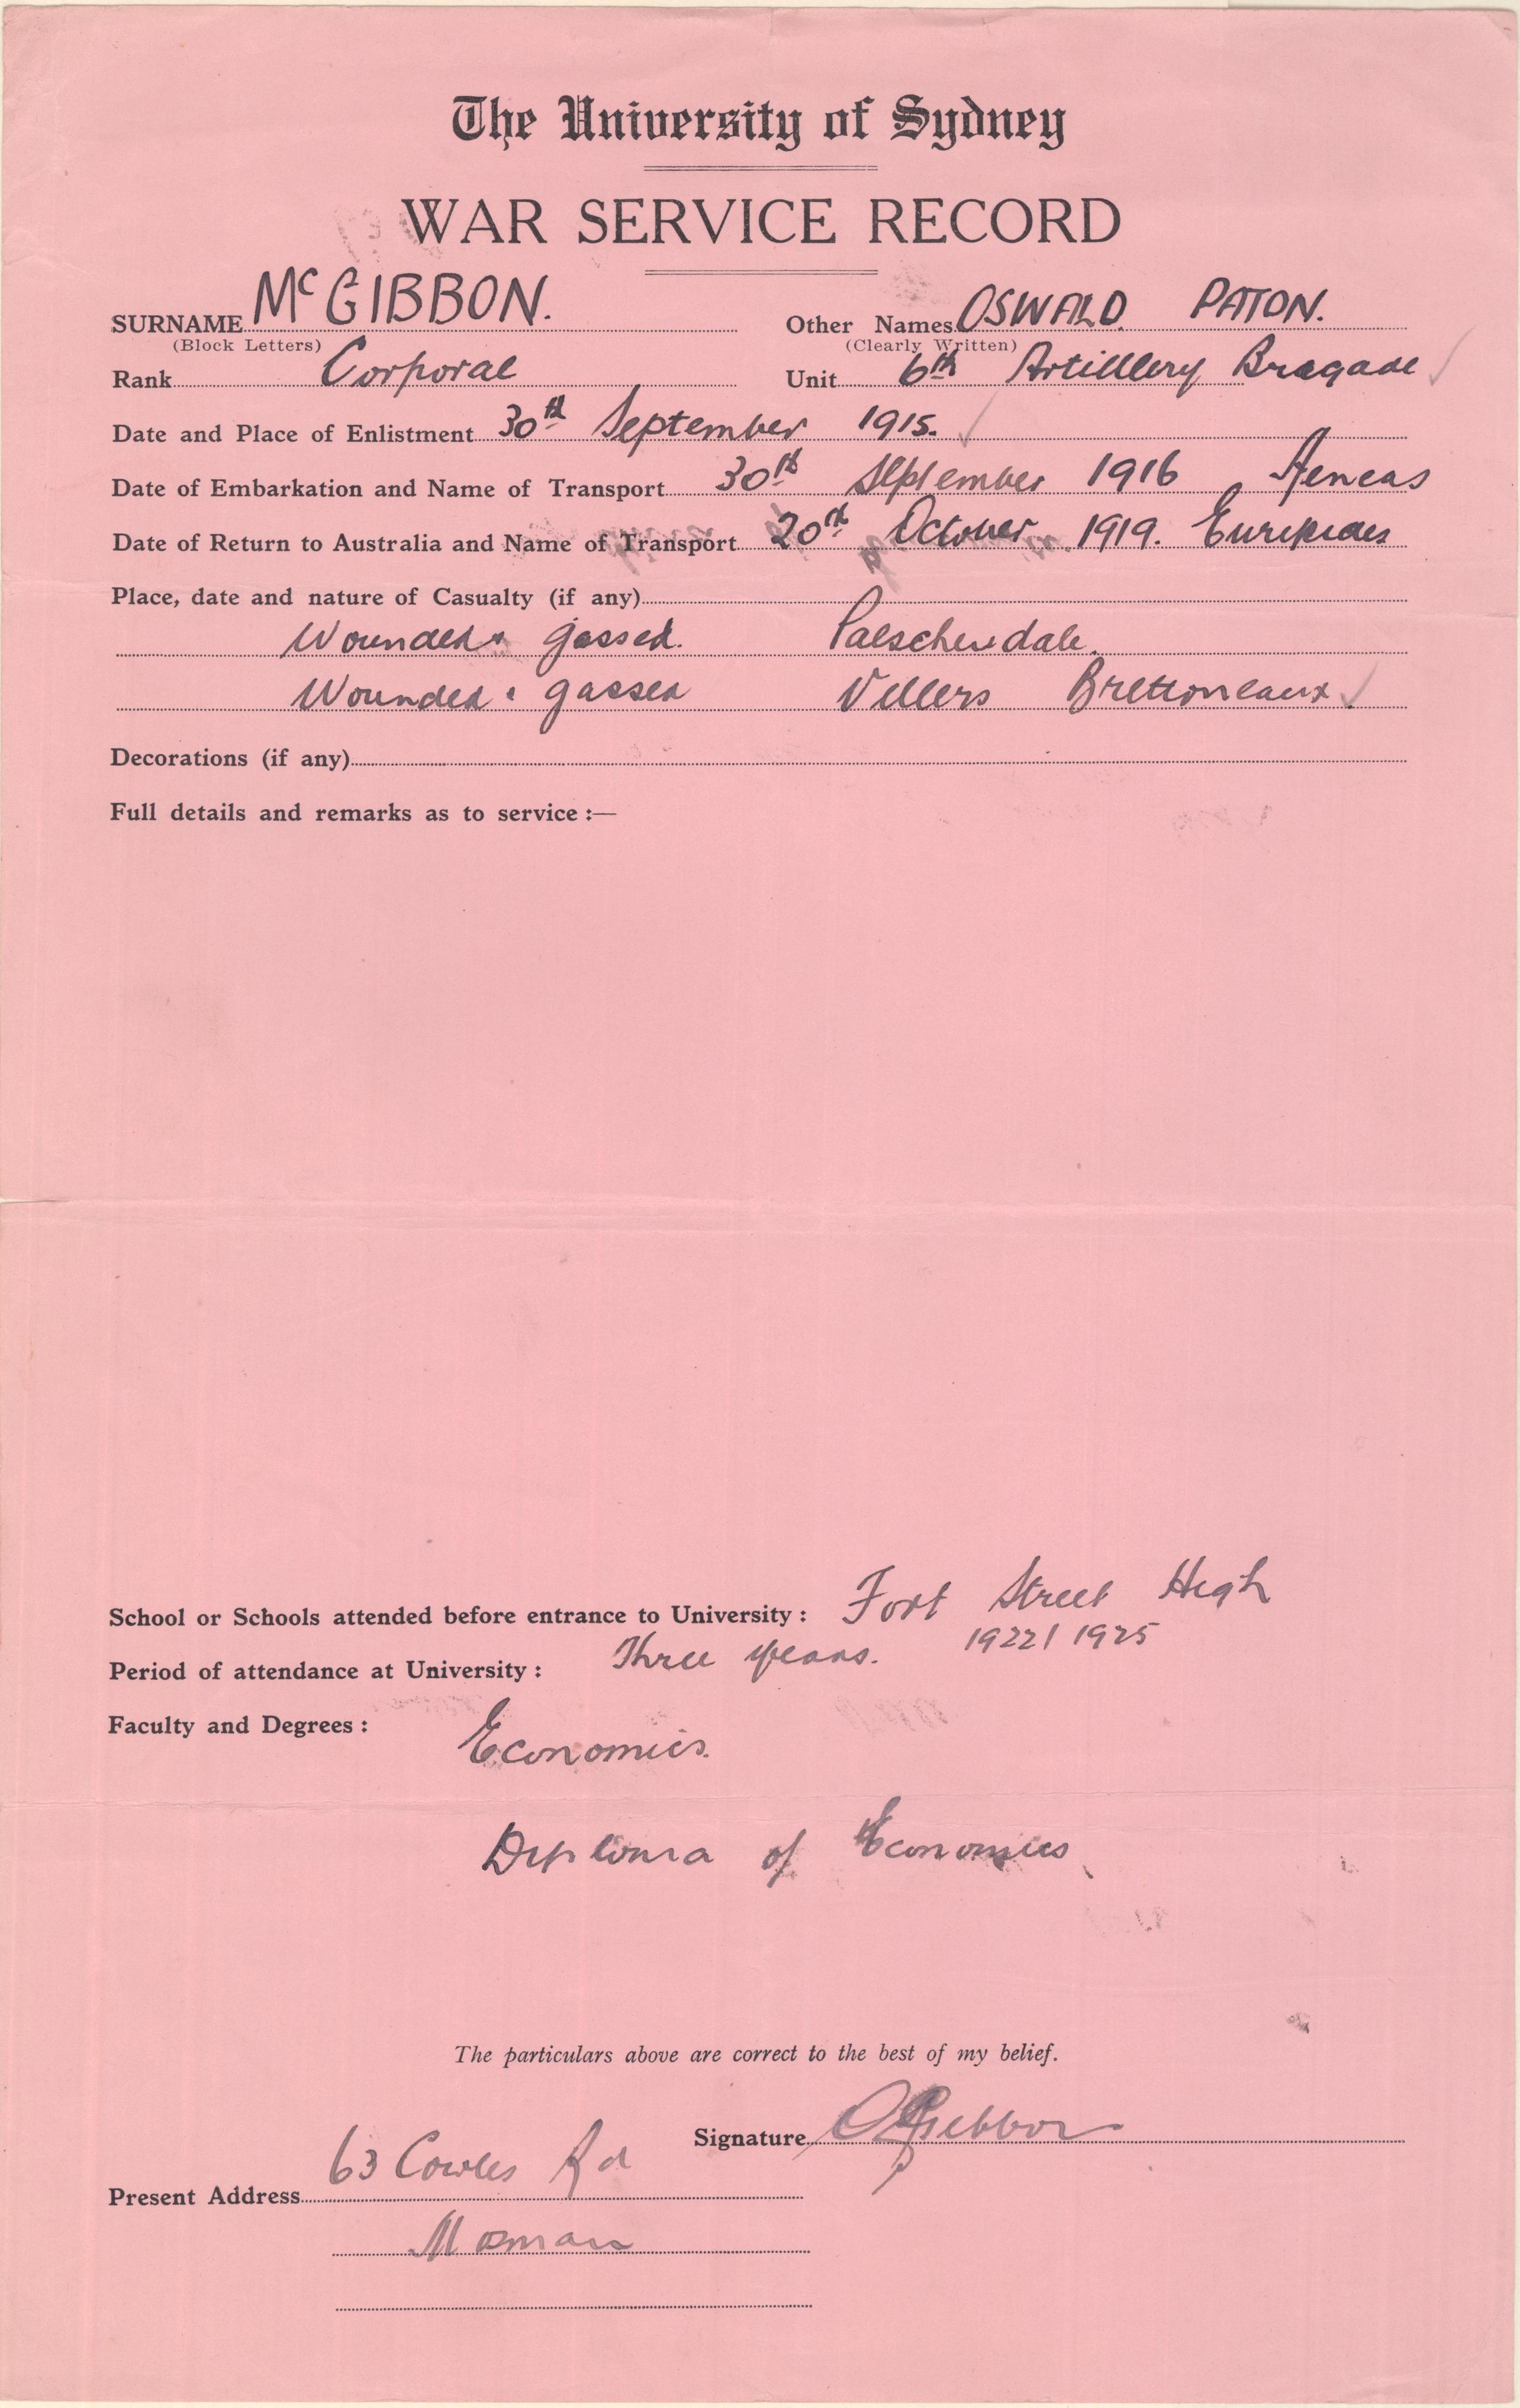 The University of Sydney
WAR SERVICE RECORD
SURNAME McGIBBON. Other Names OSWALD. PATON.
(Block Letters) (Clearly Written)
Rank Corporal Unit 6th Artilllery Bragade
Date and Place of Enlistment 30th September 1915.
Date of Embarkation and Name of Transport 30th September 1916 Aeneas
Date of Return to Australia and Name of Transport 20th October 1919. Euripides
Place, date and nature of Casualty (if any)
Wounded & gassed. Paeschendale.
Wounded & gassed Villers Brettoneaux
Decorations (if any)
Full details and remarks as to service :—
School or Schools attended before entrance to University : Fort Street High
Period of attendance at University : Three years. 1922/1925
Faculty and Degrees :
Economics.
Diploma of Economics
The particulars above are correct to the best of my belief.
Signature
Present Address 63 Cowles Rd
Mosman